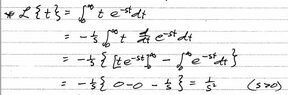 * ℒ{t} = ∫₀^∞ t e^-st dt
= -1/s ∫₀^∞ t d/dt e^-st dt
= -1/s { [t e^-st]₀^∞ - ∫₀^∞ e^-st dt }
= -1/s { 0 - 0 - 1/s } = 1/s² (s>0)